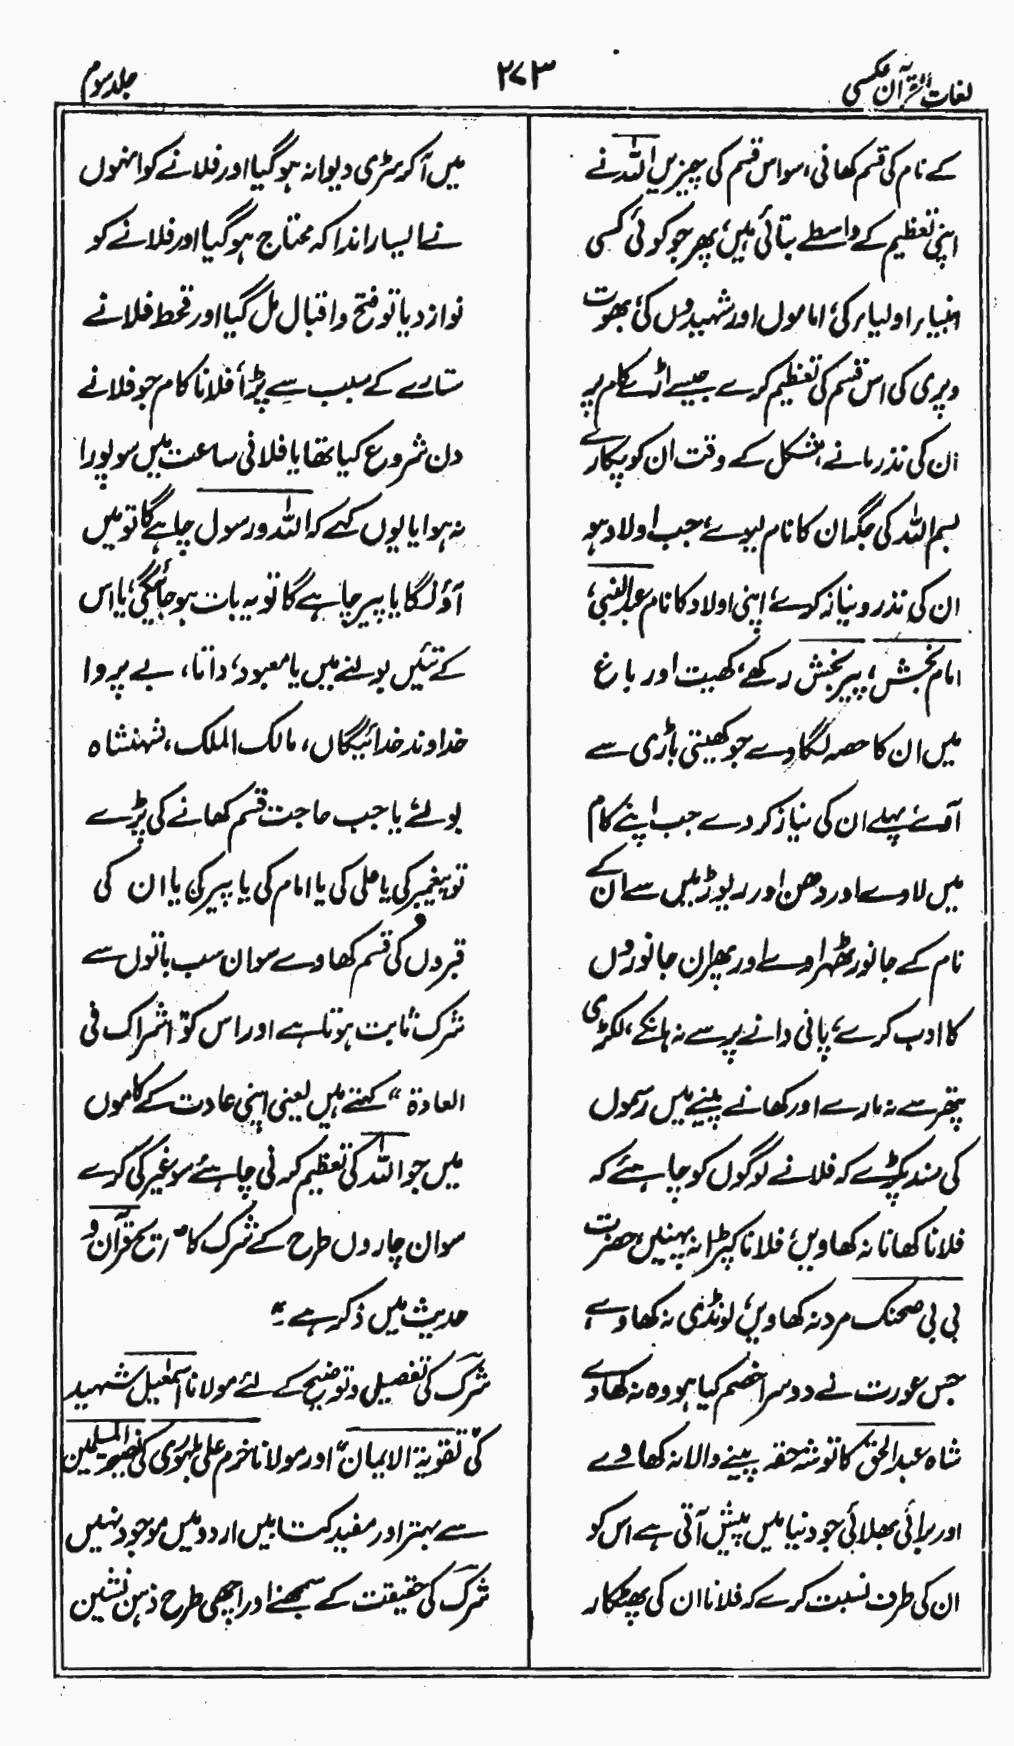 لغات القرآن عکسی
۲۷۳
جلد سوم
کے نام کی قسم کھانی، سو اس قسم کی چیزیں اللہ نے
اپنی تعظیم کے واسطے بتائی ہیں، پھر جو کوئی کسی
انبیاء و اولیاء کی، اماموں اور شہیدوں کی، بھوت
و پری کی اس قسم کی تعظیم کرے جیسے اڑے کام پر
ان کی نذر مانے، مشکل کے وقت ان کو پکارے
بسم اللہ کی جگہ ان کا نام لیوے، جب اولاد ہو
ان کی نذر و نیاز کرے، اپنی اولاد کا نام عبدالنبی،
امام بخش، پیر بخش رکھے، کھیت اور باغ
میں ان کا حصہ لگاوے جو کھیتی باڑی سے
آئے پہلے ان کی نیاز کر دے جب اپنے کام
میں لاوے اور دھن اور ریوڑ میں سے ان کے
نام کے جانور ٹھہراوے اور پھر ان جانوروں
کا ادب کرے، پانی دانے پر سے نہ ہانکے، لکڑی
پتھر سے نہ مارے اور کھانے پینے میں رسموں
کی سند پکڑے کہ فلانے لوگوں کو چاہئے کہ
فلانا کھانا نہ کھاویں، فلانا کپڑا نہ پہنیں، حضرت
بی بی صحنک مرد نہ کھاویں، لونڈی نہ کھاوے،
جس عورت نے دوسرا خصم کیا ہو وہ نہ کھاوے
شاہ عبدالحق کا توشہ حقہ پینے والا نہ کھاوے
اور برائی بھلائی جو دنیا میں پیش آتی ہے اس کو
ان کی طرف نسبت کرے کہ فلانا ان کی پھٹکار
میں آ کر سڑی دیوانہ ہو گیا اور فلانے کو انہوں
نے ایسا راندا کہ محتاج ہو گیا اور فلانے کو
نواز دیا تو فتح و اقبال مل گیا اور قحط فلانے
ستارے کے سبب سے پڑا، فلانا کام جو فلانے
دن شروع کیا تھا یا فلانی ساعت میں سو پورا
نہ ہوا یا یوں کہے کہ اللہ و رسول چاہے گا تو میں
آؤں گا یا پیر چاہے گا تو یہ بات ہو جائیگی، یا اس
کے تئیں بولنے میں یا معبود، داتا، بے پروا
خداوند خدائیگاں، مالک الملک، شہنشاہ
بولئے یا جب حاجت قسم کھانے کی پڑے
تو پیغمبر کی یا علی کی یا امام کی یا پیر کی یا ان کی
قبروں کی قسم کھاوے سو ان سب باتوں سے
شرک ثابت ہوتا ہے اور اس کو "اشراک فی
العادۃ" کہتے ہیں یعنی اپنی عادت کے کاموں
میں جو اللہ کی تعظیم کرنی چاہئے سو غیر کی کرے
سو ان چاروں طرح کے شرک کا صریح قرآن و
حدیث میں ذکر ہے"
شرک کی تفصیل و توضیح کے لئے مولانا اسمٰعیل شہید
کی "تقویۃ الایمان" اور مولانا خرم علی بلہوری کی نصیحۃ المسلمین
سے بہتر اور مفید کتابیں اردو میں موجود نہیں
شرک کی حقیقت کے سمجھنے اور اچھی طرح ذہن نشین